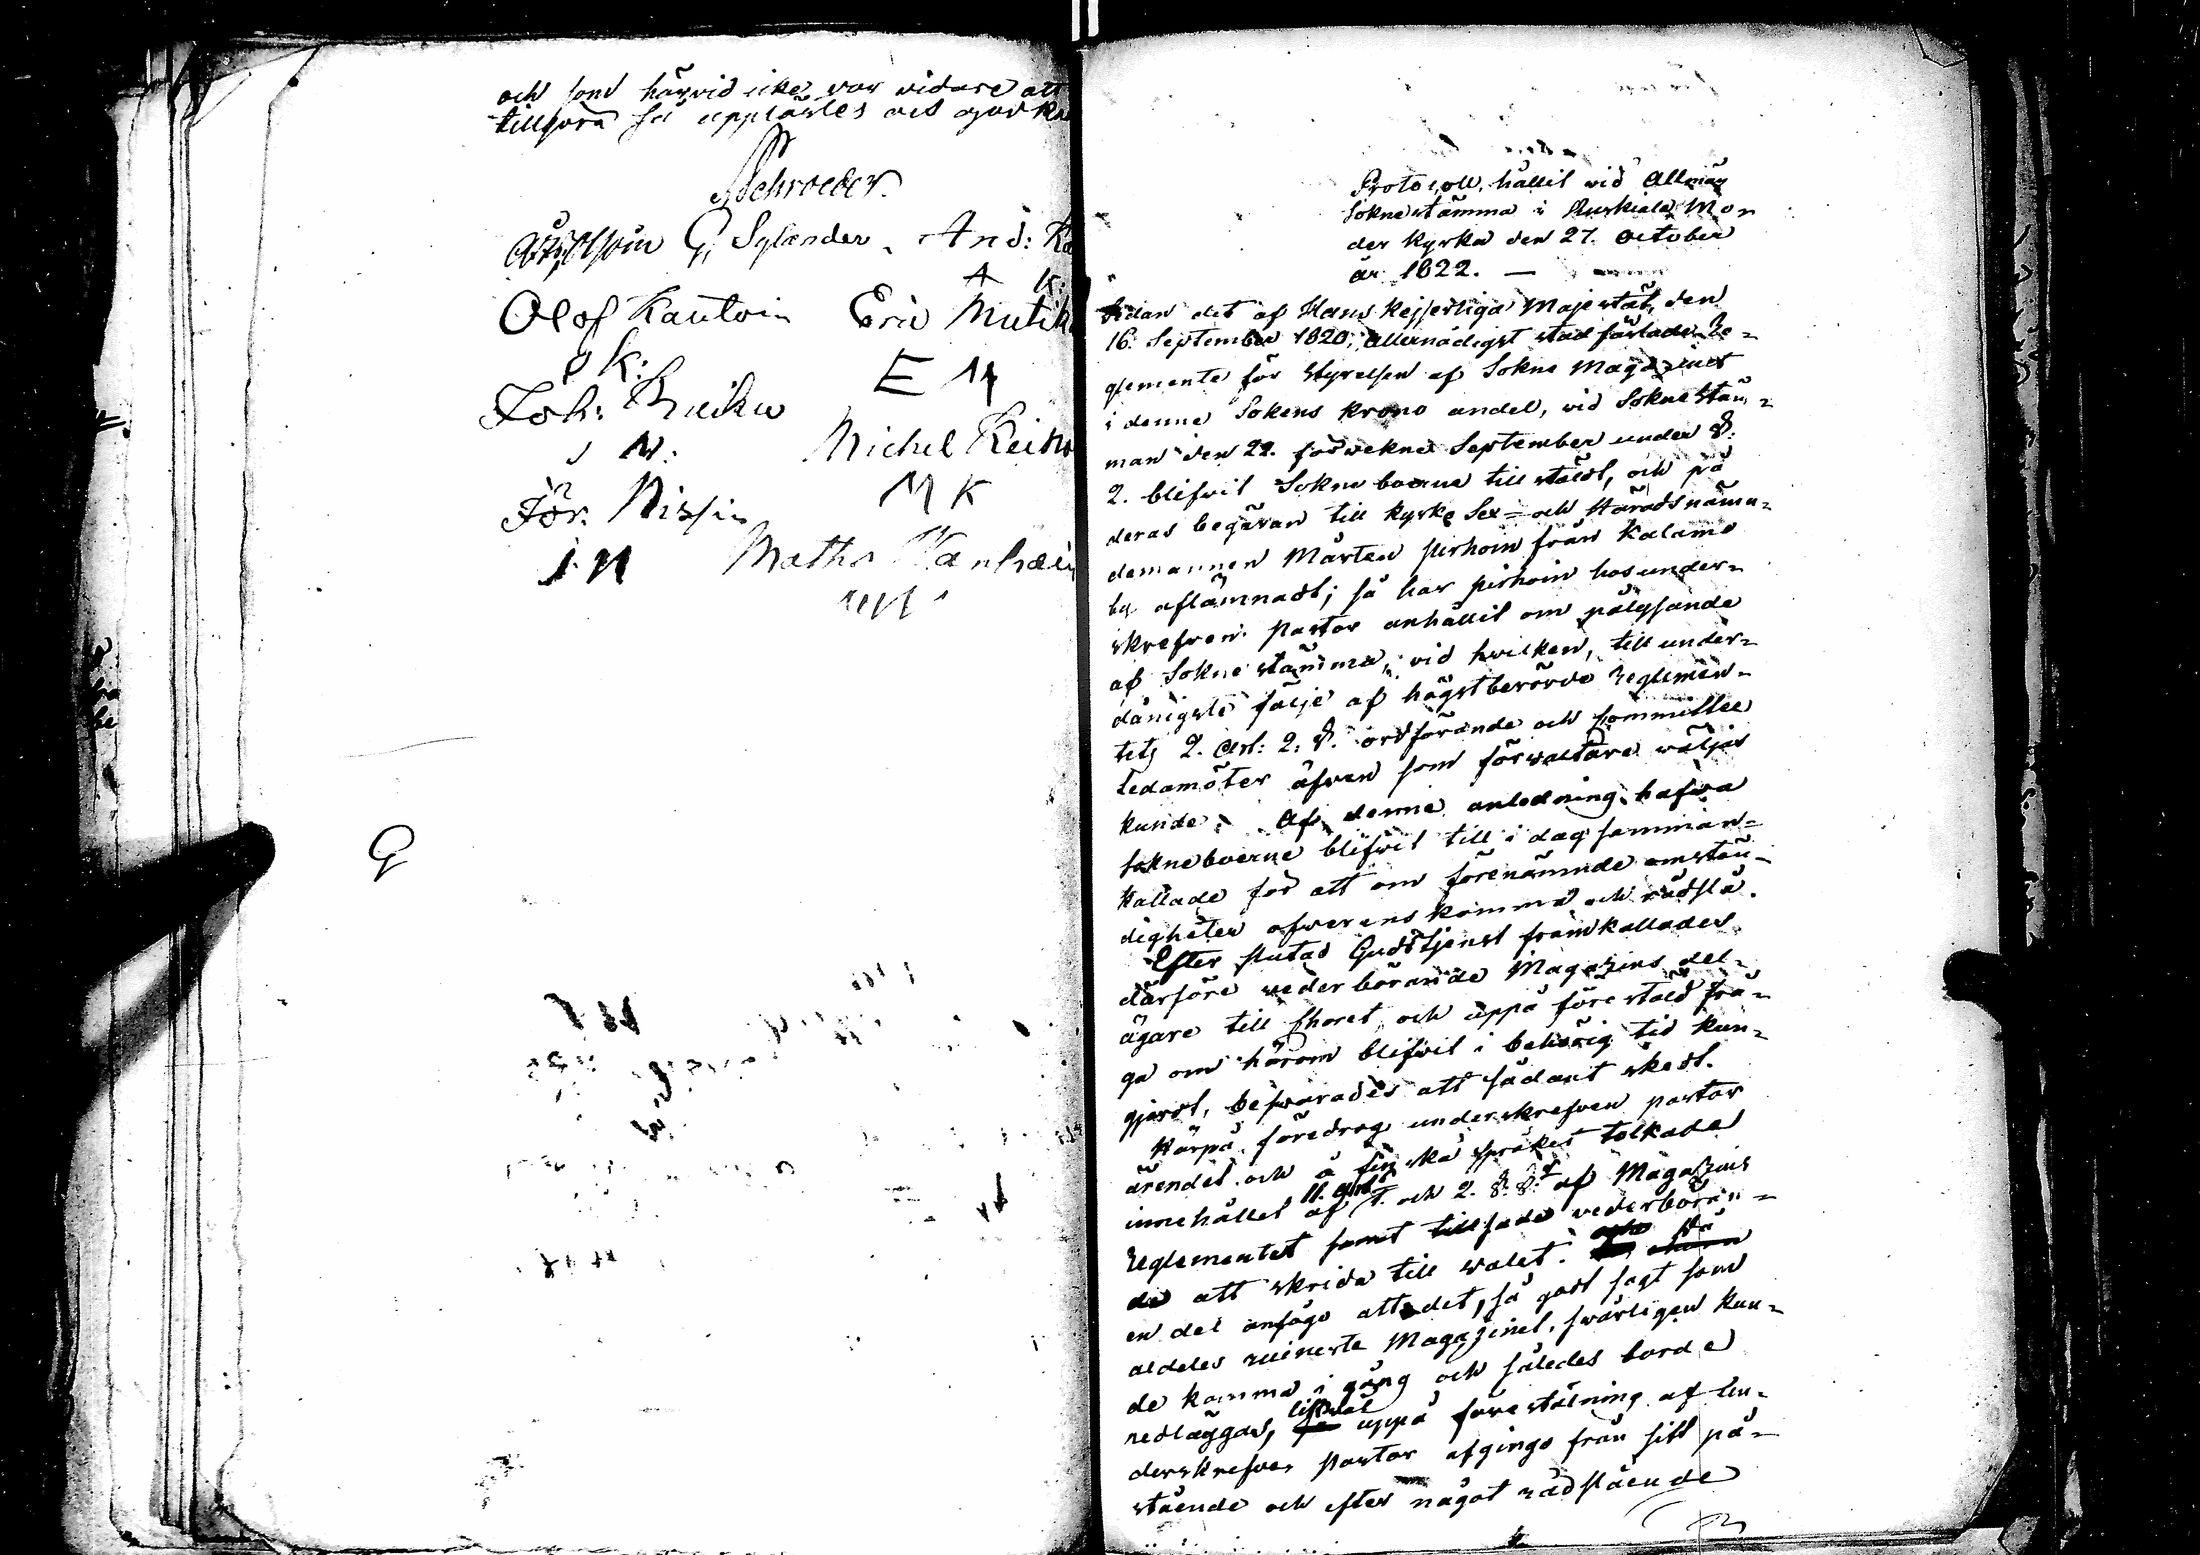 och som härvid icke var vidare att
tillgöra så upplästes och godkän
Schroeder.
G, Sylander. And: Ka
A K:
Olof Kautoin Eric Mutik
O K:
E M
Joh:
J N:
Michel Keiko
M K
Jör. Nissin
J. N
Maths
MH
Protocoll, hållit vid Allmän
Soknestämma i Ruskiala Mo
der kyrka den 27. October
år 1822. —
Sedan det af Hans Kejserliga Majestät, den
16. September 1820, allernådigst stadfästade Re=
glemente för styrelsen af Sokne Magazinet
i denne Sokens krono andel, vid Soknestäm=
man den 22. förvekne September under §.
2. blifvit Sokneboerne tillstäldt, och på
deras begäran till kyrko Sex= och Häradsnämn=
demannen Mårten Pirhoin från Kalamo
by aflämnadt; så har Pirhoin hos under=
skrefven Pastor anhållit om pålysande
af Soknestämma, vid hvilken, till under=
dånigste följe af högstberörde Reglemen=
tets 2. Art: 2. §. ordförande och Committée
Ledamöter äfven som förvaltare väljas
kunde. Af denne anledning hafva
Sokneboerne blifvit till i dag samman=
kallade för att om förenämnde omstän=
digheter öfverenskomma och rådslå.
Efter slutad Gudstjenst framkallades
därföre vederbörande Magazins del=
ägare till Choret och uppå förestäld frå=
ga om härom blifvit i behörig tid kun=
gjordt, besvarades att sådant skedt.
Härpå föredrog underskrefven Pastor
ärendet och å finska språket tolkade
11. Art.
innehållet af 1. och 2. §.§. af Magazins
Reglementet samt tillsade vederböran=
de att skrida till valet. Då
en del ansågo att det, så godt sagt som
aldeles ruinerte Magazinet, svårligen kun=
de komma i gång och således borde
nedläggas, uppå föreställning af Un=
derskrefven Pastor afgingo från sitt på=
stående och efter något rådslående